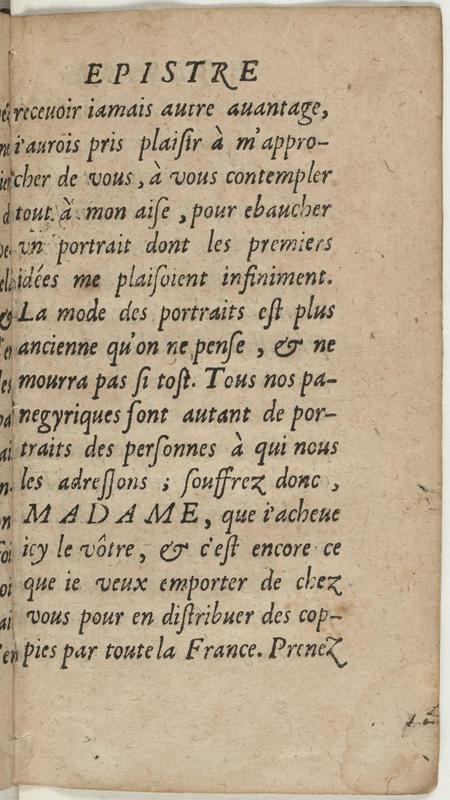 EPISTRE
receuoir iamais autre auantage,
i'aurois pris plaiſir à m'appro-
cher de vous, à vous contempler
tout à mon aiſe, pour ebaucher
vn portrait dont les premiers
idées me plaiſoient infiniment.
La mode des portraits eſt plus
ancienne qu'on ne penſe, & ne
mourra pas ſi toſt. Tous nos pa-
negyriques ſont autant de por-
traits des perſonnes à qui nous
les adreſſons ; ſouffrez donc,
MADAME, que i'acheue
icy le vôtre, & c'eſt encore ce
que ie veux emporter de chez
vous pour en diſtribuer des cop-
pies par toute la France. Prenez